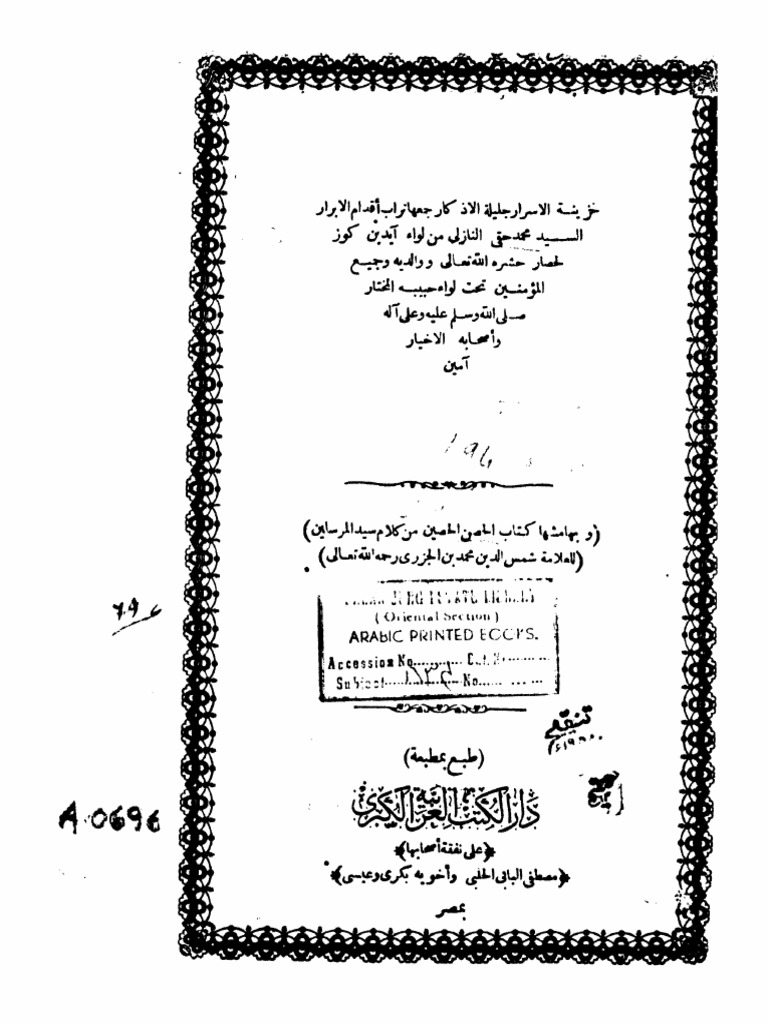 خزينة الاسرار جليلة الاذكار جمعها تراب أقدام الابرار
السيد محمد حقى النازلى من لواء آيدين كوز
لحصار حشره الله تعالى ووالديه وجميع
المؤمنين تحت لواء حبيبه المختار
صلى الله وسلم عليه وعلى آله
وأصحابه الاخيار
آمين
(وبهامشها كتاب الحصن الحصين من كلام سيد المرسلين)
(للعلامة شمس الدين محمد بن الجزرى رحمه الله تعالى)
(Oriental Section)
ARABIC PRINTED BOOKS.
Accession No.......... Cat. No..........
Subject.......... No..........
(طبع بمطبعة)
دار الكتب العربية الكبرى
(على نفقة أصحابها)
(مصطفى البابى الحلبى وأخويه بكرى وعيسى)
بمصر
A.0696